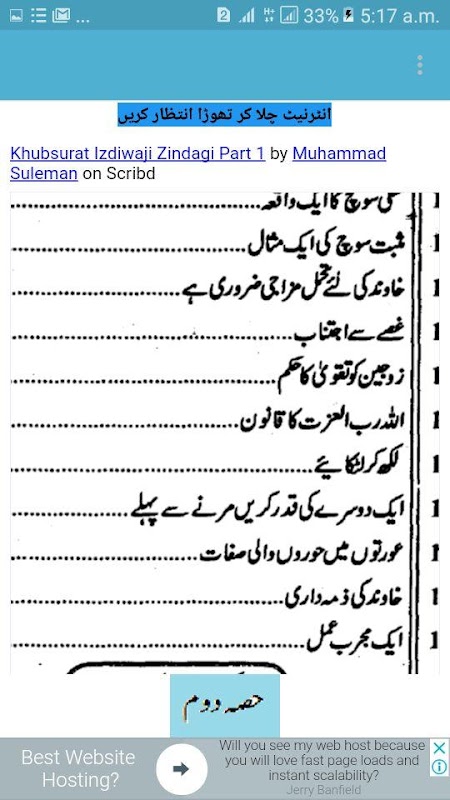 ... 2 H+ 33% 5:17 a.m.
انٹرنیٹ چلا کر تھوڑا انتظار کریں
Khubsurat Izdiwaji Zindagi Part 1 by Muhammad
Suleman on Scribd
سوچ کا ایک واقعہ
مثبت سوچ کی ایک مثال
خاوند کی لئے تحمل مزاجی ضروری ہے
غصے سے اجتناب
زوجین کو تقویٰ کا حکم
اللہ رب العزت کا قانون
لکھ کر لٹکائیے
ایک دوسرے کی قدر کریں مرنے سے پہلے
عورتوں میں حوروں والی صفات
خاوند کی ذمہ داری
ایک مجرب عمل
حصہ دوم
Best Website
Hosting?
Will you see my web host because
you will love fast page loads and
instant scalability?
Jerry Banfield